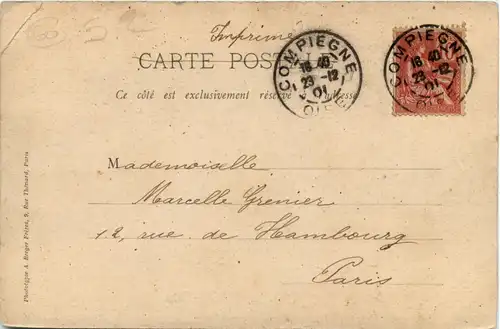 Imprimé
CARTE POSTALE
Ce côté est exclusivement réservé à l'adresse
COMPIÈGNE
16 40
23 -12
01
OISE
COMPIÈGNE
16 40
23 -12
01
OISE
Mademoiselle
Marcelle Grenier
12, rue de Hambourg
Paris
Phototypie A. Berger Frères, 9, Rue Thénard, Paris